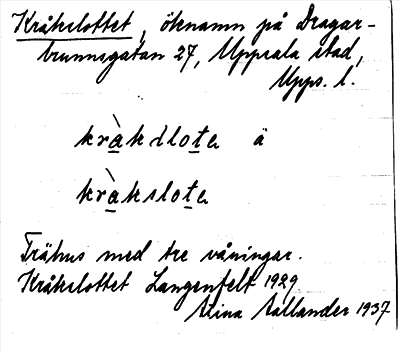 Kråkslottet, öknamn på Dragar-
brunnsgatan 27, Uppsala stad,
Upps. l.
kràkslota ä
kràkslota
Trähus med tre våningar.
Kråkslottet Langenfelt 1929
Stina Hallander 1937